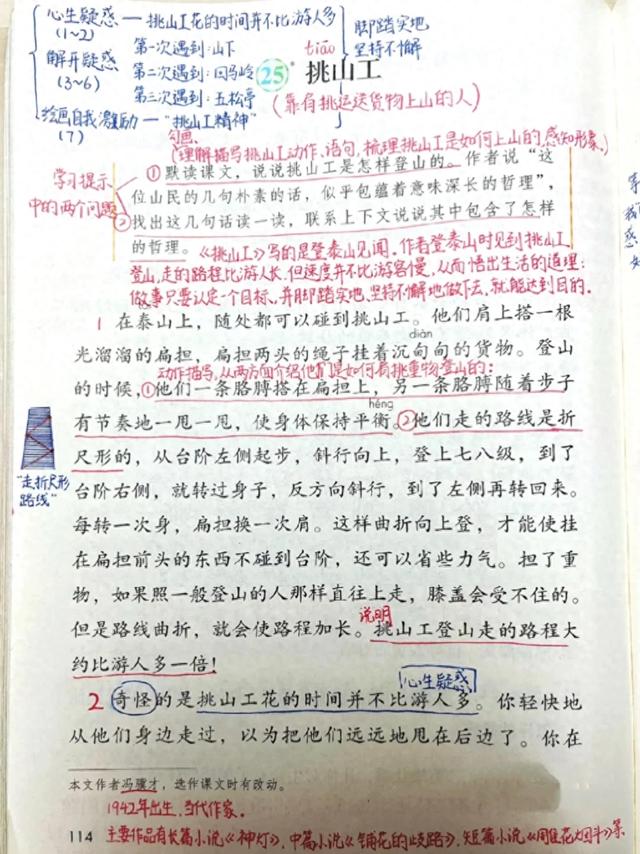 心生疑惑——挑山工花的时间并不比游人多
(1~2)
解开疑惑
(3~6)
第一次遇到:山下
第二次遇到:回马岭
第三次遇到:五松亭
绘画自我激励——"挑山工精神"
(7)
脚踏实地
坚持不懈
tiāo
25* 挑山工
(靠肩挑运送货物上山的人)
勾画
(理解描写挑山工动作、语句,梳理挑山工是如何上山的,感知形象。)
学习提示
中的两个问题
①默读课文,说说挑山工是怎样登山的。作者说"这
位山民的几句朴素的话,似乎包蕴着意味深长的哲理",
②找出这几句话读一读,联系上下文说说其中包含了怎样
的哲理。《挑山工》写的是登泰山见闻。作者登泰山时见到挑山工
登山,走的路程比游人长,但速度并不比游客慢,从而悟出生活的道理:
做事只要认定一个目标,并脚踏实地、坚持不懈地做下去,就能达到目的。
1 在泰山上,随处都可以碰到挑山工。他们肩上搭一根
diàn
光溜溜的扁担,扁担两头的绳子挂着沉甸甸的货物。登山
动作描写,从两方面介绍他们是如何肩挑重物登山的:
的时候,①他们一条胳膊搭在扁担上,另一条胳膊随着步子
héng
有节奏地一甩一甩,使身体保持平衡。②他们走的路线是折
尺形的,从台阶左侧起步,斜行向上,登上七八级,到了
"走折尺形
路线"
台阶右侧,就转过身子,反方向斜行,到了左侧再转回来。
每转一次身,扁担换一次肩。这样曲折向上登,才能使挂
在扁担前头的东西不碰到台阶,还可以省些力气。担了重
物,如果照一般登山的人那样直往上走,膝盖会受不住的。
说明
但是路线曲折,就会使路程加长。挑山工登山走的路程大
约比游人多一倍!
心生疑惑
2 奇怪的是挑山工花的时间并不比游人多。你轻快地
从他们身边走过,以为把他们远远地甩在后边了。你在
本文作者冯骥才,选作课文时有改动。
1942年出生,当代作家。
114 主要作品有长篇小说《神灯》,中篇小说《铺花的歧路》,短篇小说《雕花烟斗》等